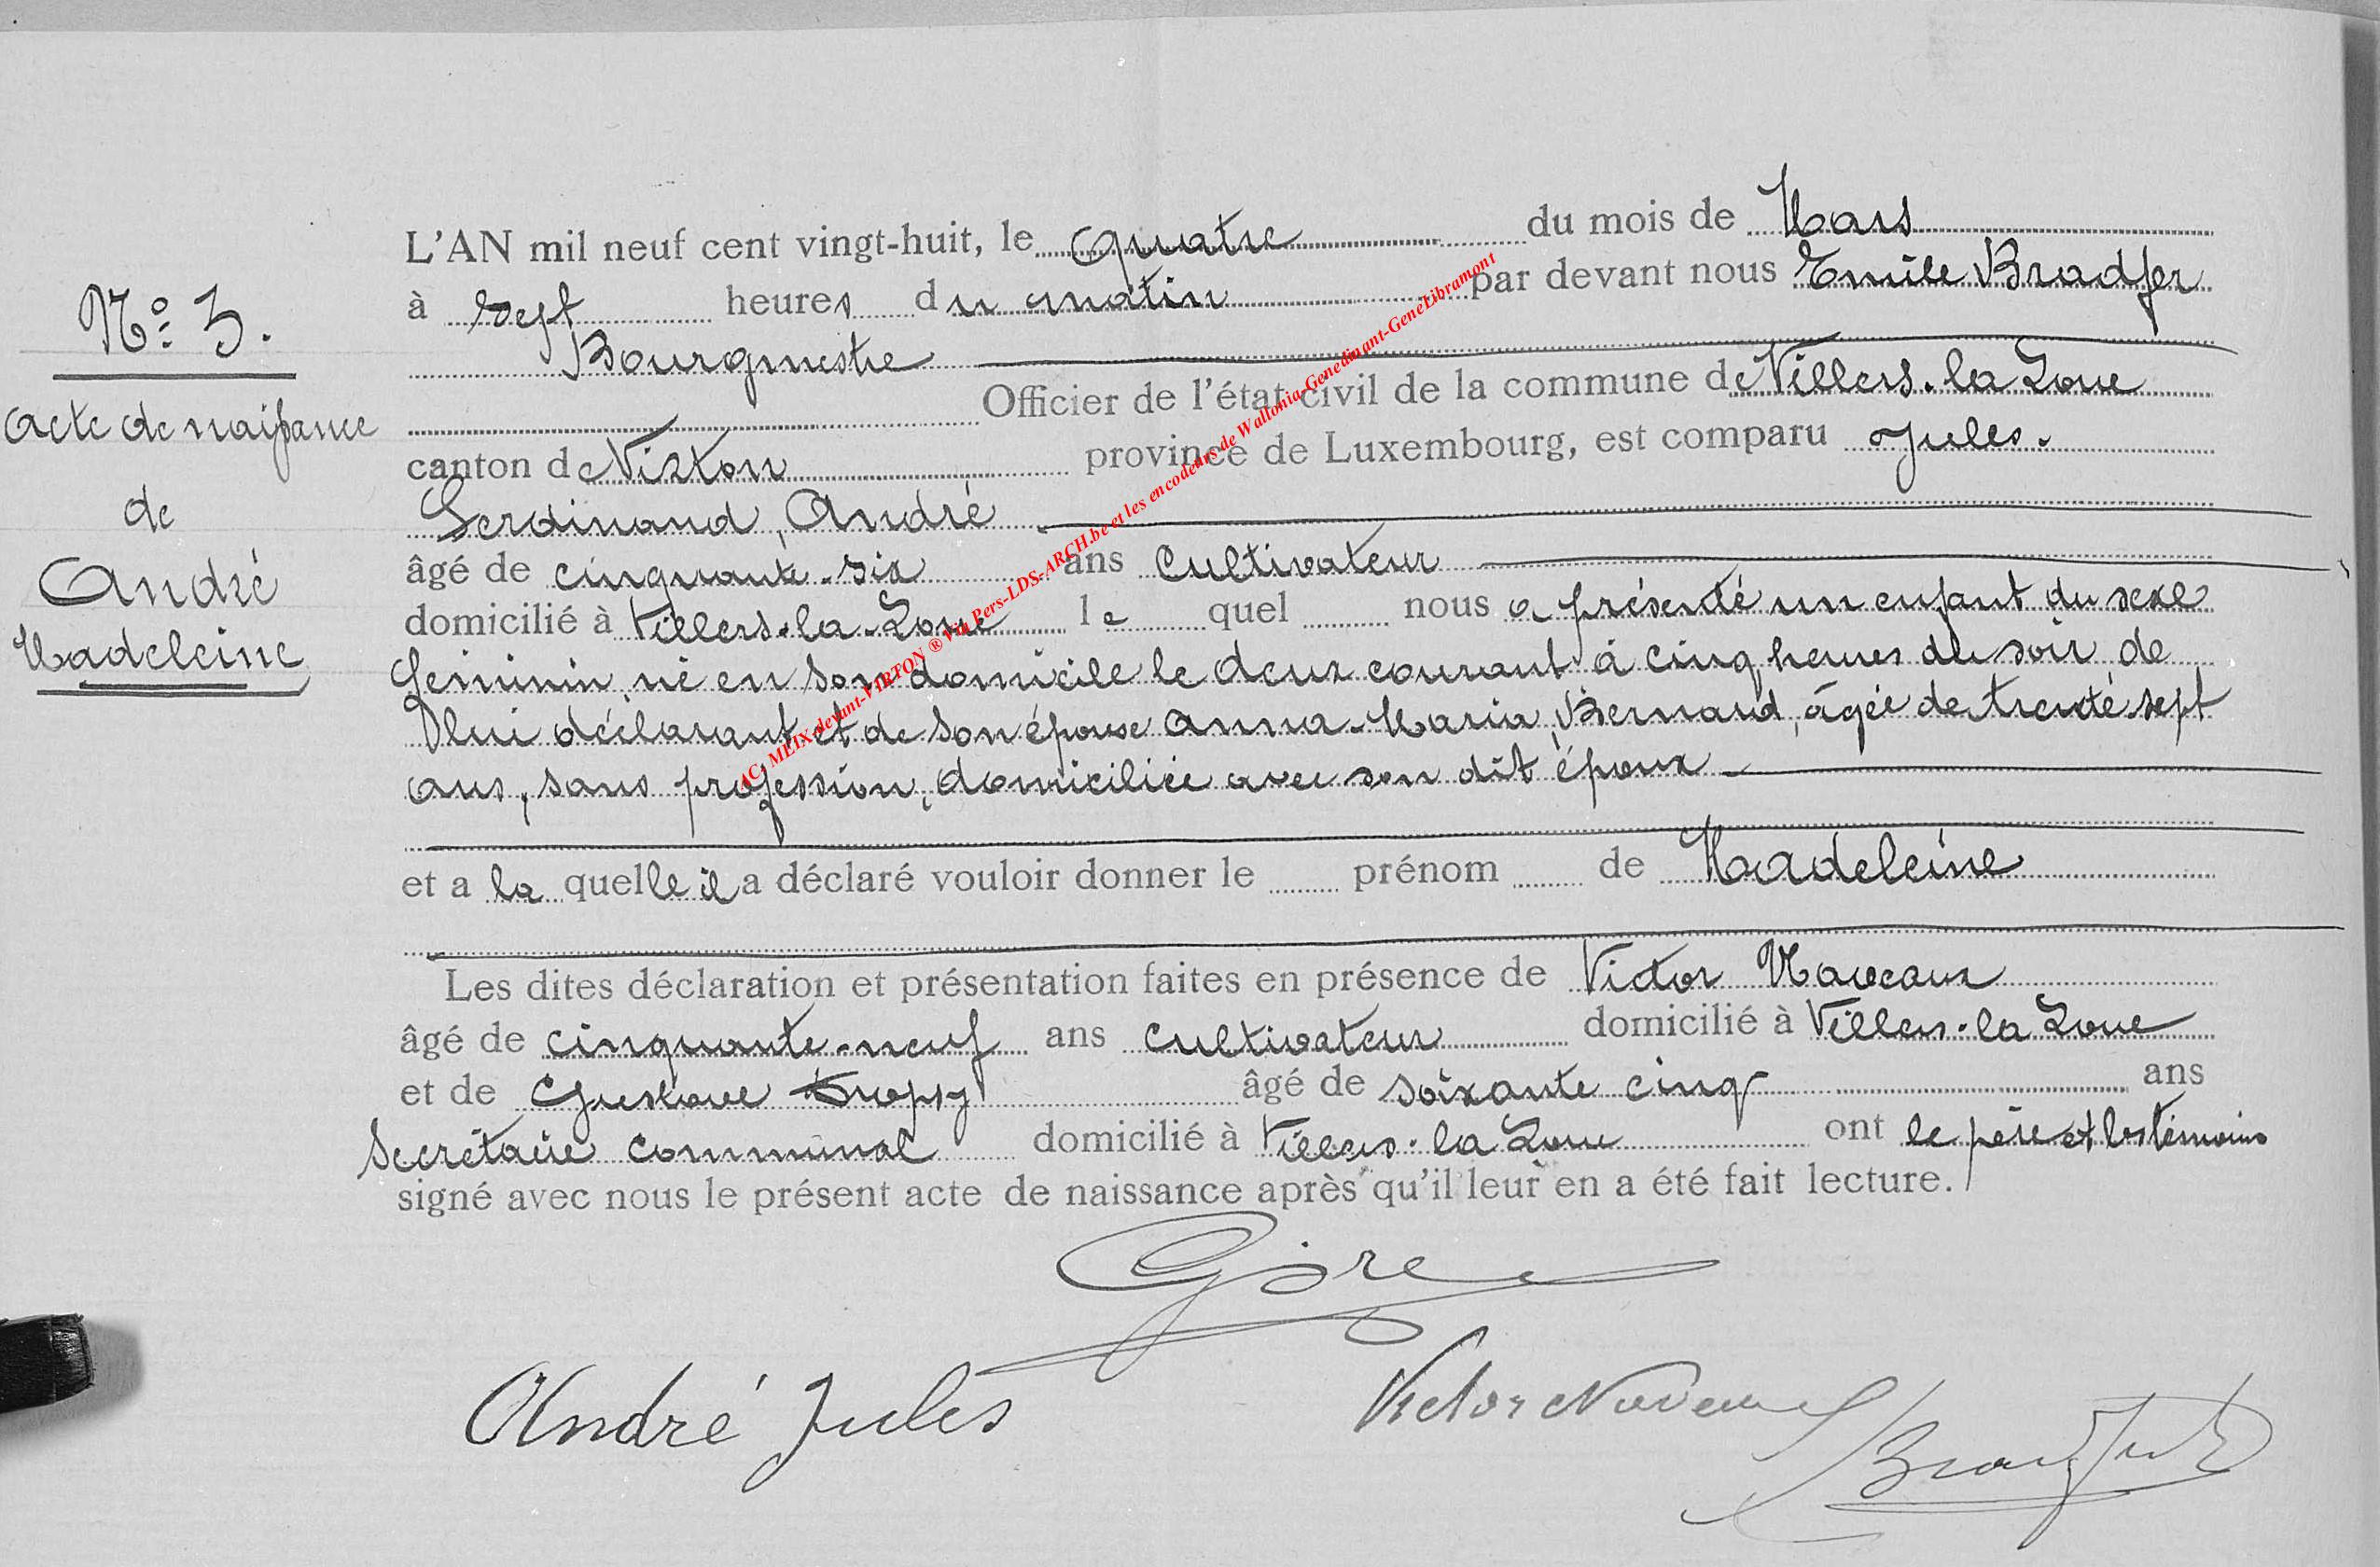 N° 3.
Acte de naissance
de
André
Madeleine
L'AN mil neuf cent vingt-huit, le quatre du mois de Mars
à sept heures du matin par devant nous Emile Bradfer
Bourgmestre
Officier de l'état civil de la commune de Villers-la-Loue
canton de Virton province de Luxembourg, est comparu Jules-
Ferdinand, André
âgé de cinquante-six ans Cultivateur
domicilié à Villers-la-Loue lequel nous a présenté un enfant du sexe
féminin, né en son domicile le deux courant à cinq heures du soir de
lui déclarant et de son épouse Anna-Maria, Bernard, âgée de trente sept
ans, sans profession, domiciliée avec son dit époux
et a la quelle il a déclaré vouloir donner le prénom de Madeleine
Les dites déclaration et présentation faites en présence de Victor Naveaux
âgé de cinquante-neuf ans cultivateur domicilié à Villers-la Loue
et de Gustave âgé de soixante cinq ans
Secrétaire communal domicilié à Villers-la Loue ont le père et les témoins
signé avec nous le présent acte de naissance après qu'il leur en a été fait lecture.
André Jules
Victor Naveaux
Bradfer
AC. MEIX-devant-VIRTON ® Via Pers-LDS-ARCH.be et les encodeurs de Wallonia-Genedinant-GeneLibramont